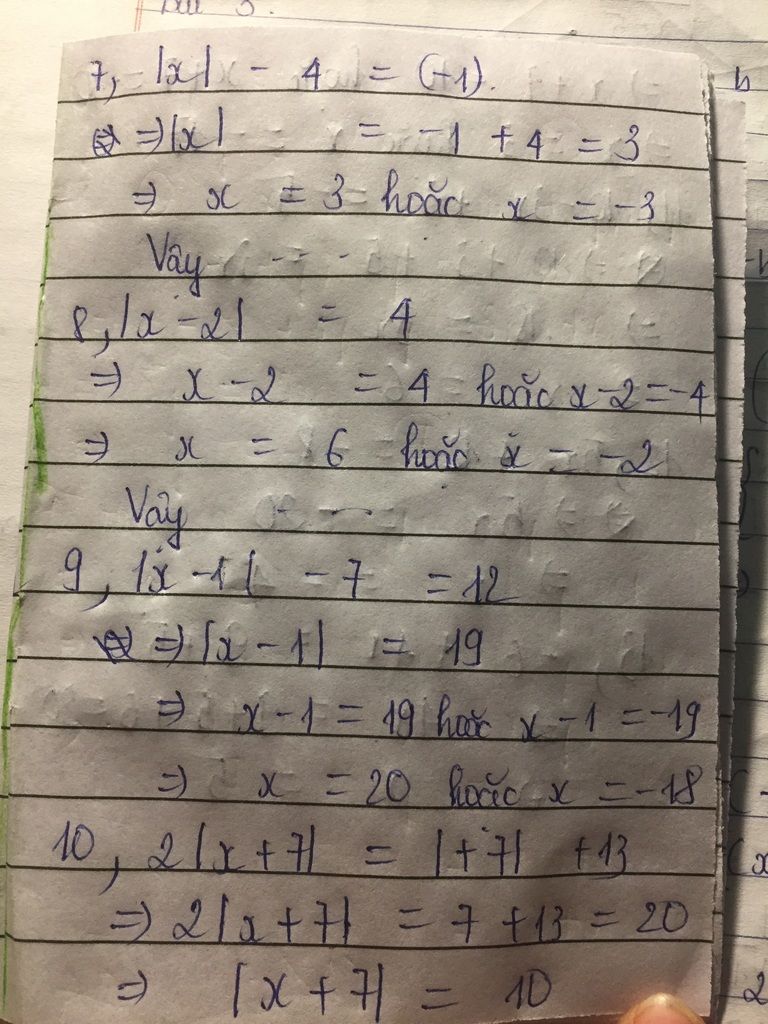 Bài 3.
7, |x| - 4 = (-1).
⇒ |x| = -1 + 4 = 3
⇒ x = 3 hoặc x = -3
Vậy ---
8, |x - 2| = 4
⇒ x - 2 = 4 hoặc x - 2 = -4
⇒ x = 6 hoặc x = -2
Vậy
9, |x - 1| - 7 = 12
⇒ |x - 1| = 19
⇒ x - 1 = 19 hoặc x - 1 = -19
⇒ x = 20 hoặc x = -18
10, 2|x + 7| = |+7| + 13
⇒ 2|x + 7| = 7 + 13 = 20
⇒ |x + 7| = 10